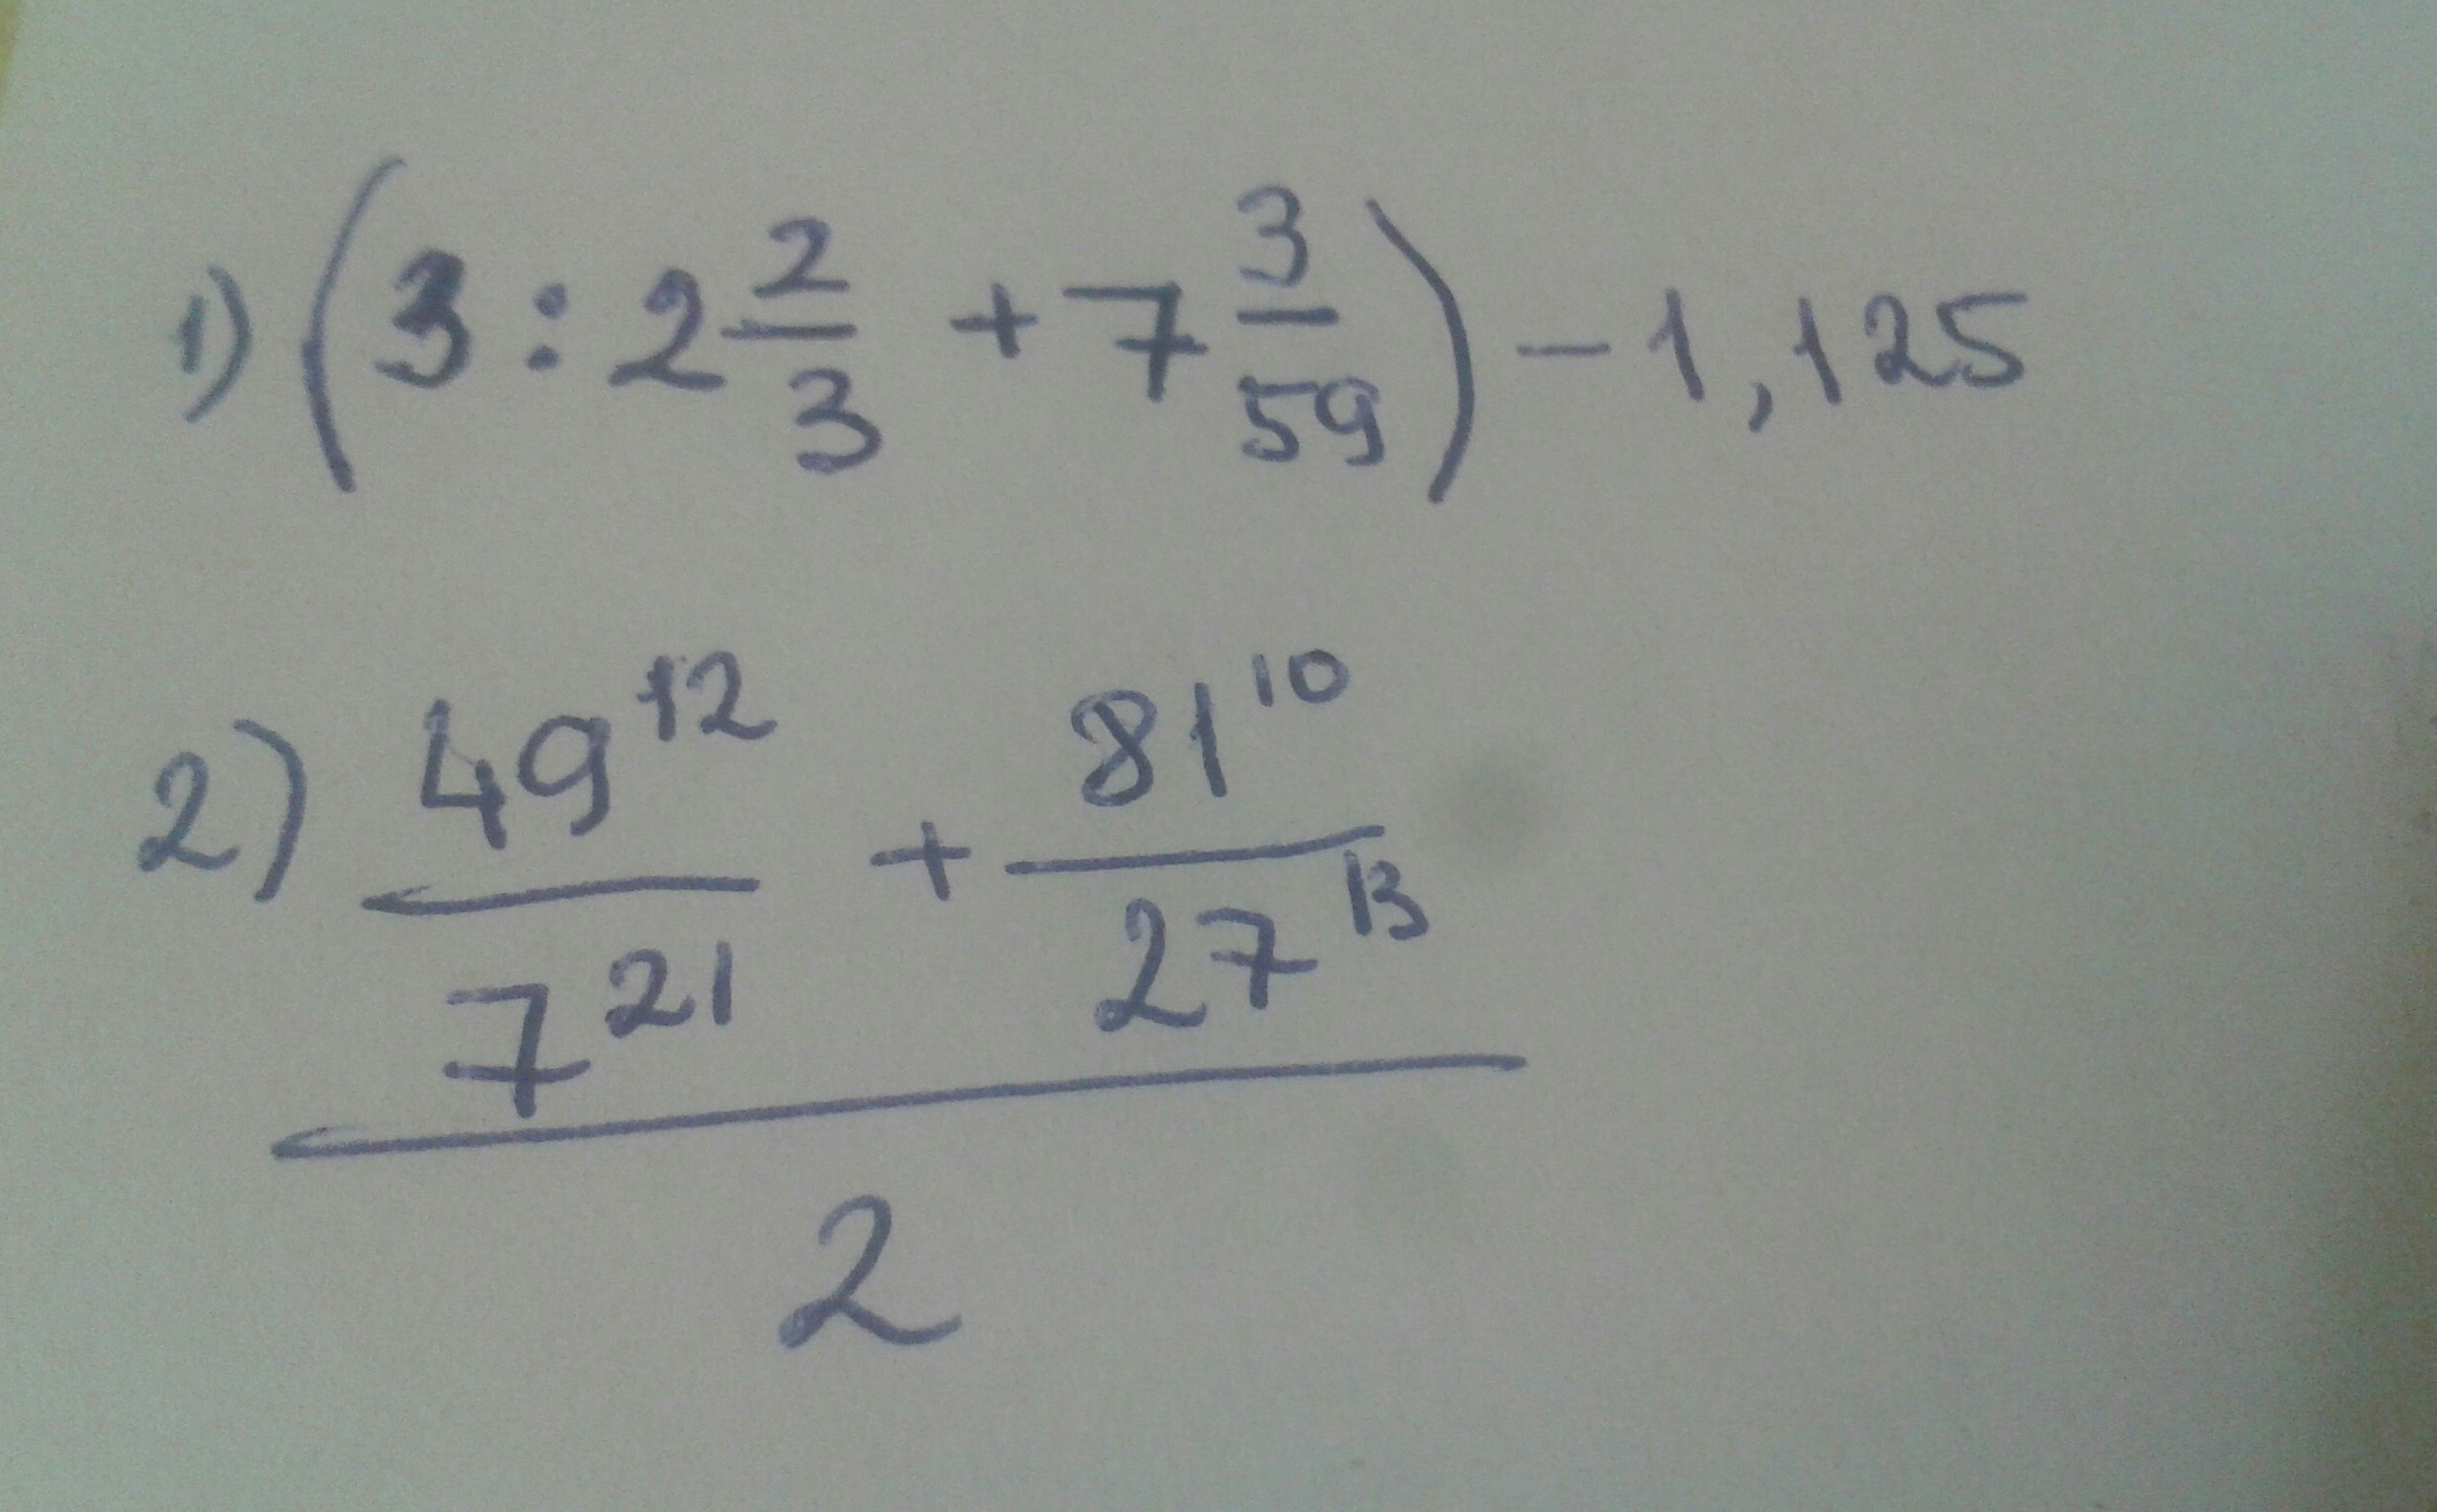 1) (3 : 2 2/3 + 7 3/59) - 1,125
2) (49^12/7^21 + 81^10/27^13)/2